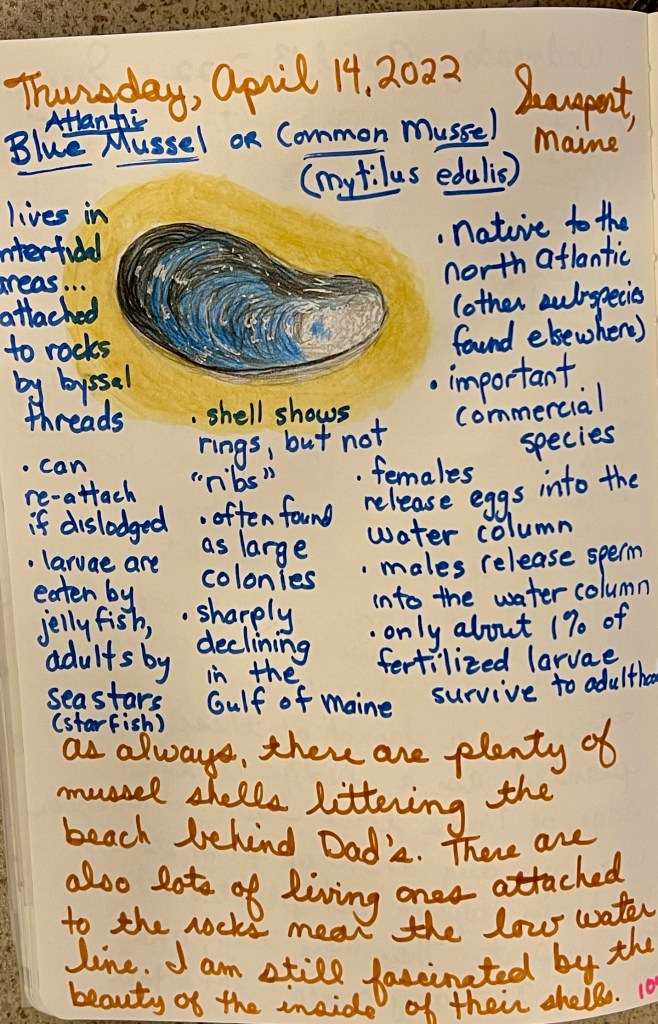 Thursday, April 14, 2022
Searsport,
Maine
Atlantic
Blue Mussel or Common Mussel
(mytilus edulis)
lives in
intertidal
areas...
attached
to rocks
by byssal
threads
• can
re-attach
if dislodged
• larvae are
eaten by
jellyfish,
adults by
sea stars
(starfish)
• shell shows
rings, but not
"ribs"
• often found
as large
colonies
• sharply
declining
in the
Gulf of Maine
• Native to the
north Atlantic
(other subspecies
found elsewhere)
• important
commercial
species
• females
release eggs into the
water column
• males release sperm
into the water column
• only about 1% of
fertilized larvae
survive to adulthood
As always, there are plenty of
mussel shells littering the
beach behind Dad's. There are
also lots of living ones attached
to the rocks near the low water
line. I am still fascinated by the
beauty of the inside of their shells.